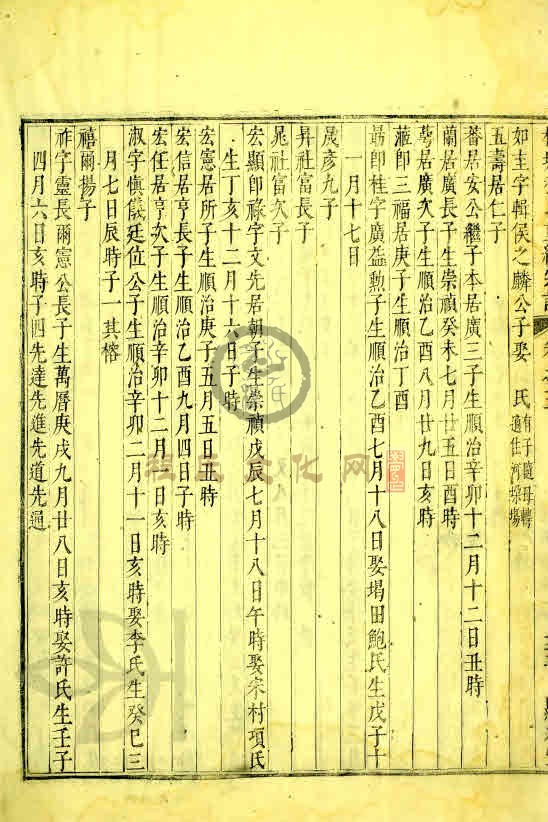 如圭字輯侯之麟公子娶　氏有子隨母轉
適住河
五壽居仁子
蕃居安公繼子本居廣三子生順治辛卯十二月十二日丑時
蘭居廣長子生崇禎癸未七月廿五日酉時
居廣次子生順治乙酉八月廿九日亥時
即三福居庚子生順治丁酉
勗即桂字廣益勲子生順治乙酉七月十八日娶塌田鮑氏生戊子十
一月十七日
晟彥九子
昇社富長子
晁社富次子
宏顯即祿字文先居朝子生崇禎戊辰七月十八日午時娶宋村項氏
生丁亥十二月十六日子時
宏憲居所子生順治庚子五月五日丑時
宏信居亨長子生順治乙酉九月四日子時
宏任居亨次子生順治辛卯十二月一日亥時
淑字慎儀廷位公子生順治辛卯二月十一日亥時娶李氏生癸巳三
月七日辰時子一其榕
禧爾揚子
祚字靈長爾憲公長子生萬曆庚戌九月廿八日亥時娶許氏生壬子
四月六日亥時子四先達先進先道先過
文化网